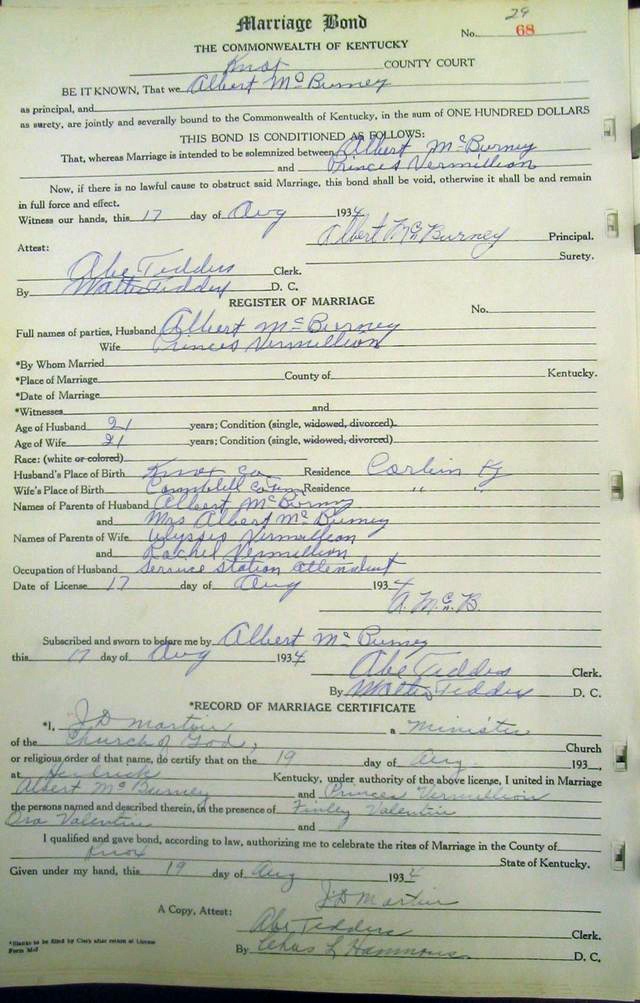 29
Marriage Bond
No. 68
THE COMMONWEALTH OF KENTUCKY
Knox COUNTY COURT
BE IT KNOWN, That we Albert McBurney
as principal, and
as surety, are jointly and severally bound to the Commonwealth of Kentucky, in the sum of ONE HUNDRED DOLLARS
THIS BOND IS CONDITIONED AS FOLLOWS:
That, whereas Marriage is intended to be solemnized between Albert McBurney
and Princes Vermillion
Now, if there is no lawful cause to obstruct said Marriage, this bond shall be void, otherwise it shall be and remain
in full force and effect.
Witness our hands, this 17 day of Aug 1934
Albert McBurney Principal.
Surety.
Attest:
Abe Teddus Clerk.
By Walter Teddus D. C.
REGISTER OF MARRIAGE
No.
Full names of parties, Husband Albert McBurney
Wife Princes Vermillion
*By Whom Married
*Place of Marriage County of Kentucky.
*Date of Marriage
*Witnesses and
Age of Husband 21 years; Condition (single, widowed, divorced)
Age of Wife 21 years; Condition (single, widowed, divorced)
Race: (white or colored)
Husband's Place of Birth Knox Co Residence Corbin Ky
Wife's Place of Birth Campbell Co Tenn Residence " "
Names of Parents of Husband Albert McBurney
and Mrs Albert McBurney
Names of Parents of Wife Ulyssis Vermillion
and Rachel Vermillion
Occupation of Husband Service Station attendant
Date of License 17 day of Aug 1934
A. McB.
Subscribed and sworn to before me by Albert McBurney
this 17 day of Aug 1934
Abe Teddus Clerk.
By Walter Teddus D. C.
*RECORD OF MARRIAGE CERTIFICATE
*I, J D Martin a Minister
of the Church of God, Church
or religious order of that name, do certify that on the 19 day of Aug. 193
at Kentucky, under authority of the above license, I united in Marriage
Albert McBurney and Princes Vermillion
the persons named and described therein, in the presence of Finley Valentin
Ora Valentin and
I qualified and gave bond, according to law, authorizing me to celebrate the rites of Marriage in the County of
Knox State of Kentucky.
Given under my hand, this 19 day of Aug 1934
J. D Martin
A Copy, Attest:
Abe Teddus Clerk.
By Chas L Hammons D. C.
*Blanks to be filled by Clerk after return of License